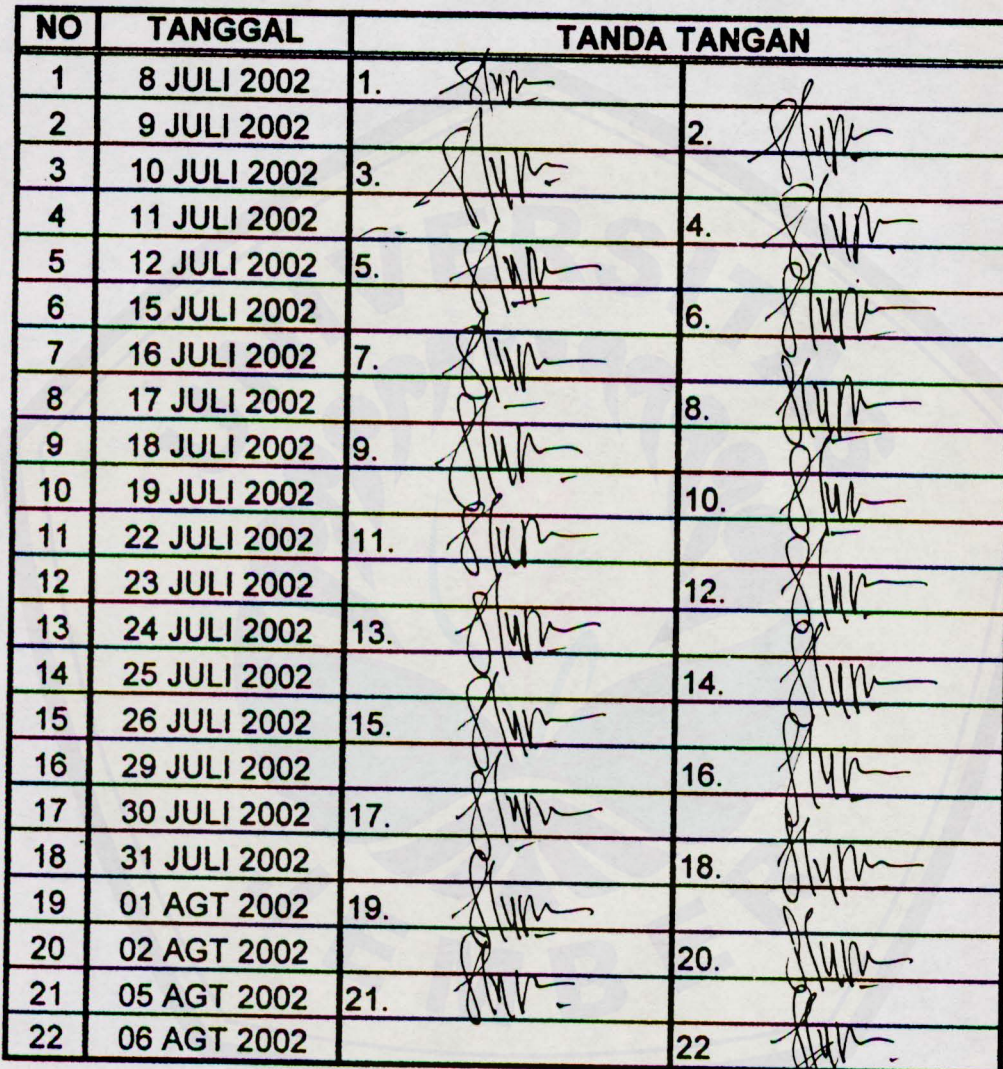 NO TANGGAL TANDA TANGAN
1 8 JULI 2002 1.
2 9 JULI 2002 2.
3 10 JULI 2002 3.
4 11 JULI 2002 4.
5 12 JULI 2002 5.
6 15 JULI 2002 6.
7 16 JULI 2002 7.
8 17 JULI 2002 8.
9 18 JULI 2002 9.
10 19 JULI 2002 10.
11 22 JULI 2002 11.
12 23 JULI 2002 12.
13 24 JULI 2002 13.
14 25 JULI 2002 14.
15 26 JULI 2002 15.
16 29 JULI 2002 16.
17 30 JULI 2002 17.
18 31 JULI 2002 18.
19 01 AGT 2002 19.
20 02 AGT 2002 20.
21 05 AGT 2002 21.
22 06 AGT 2002 22